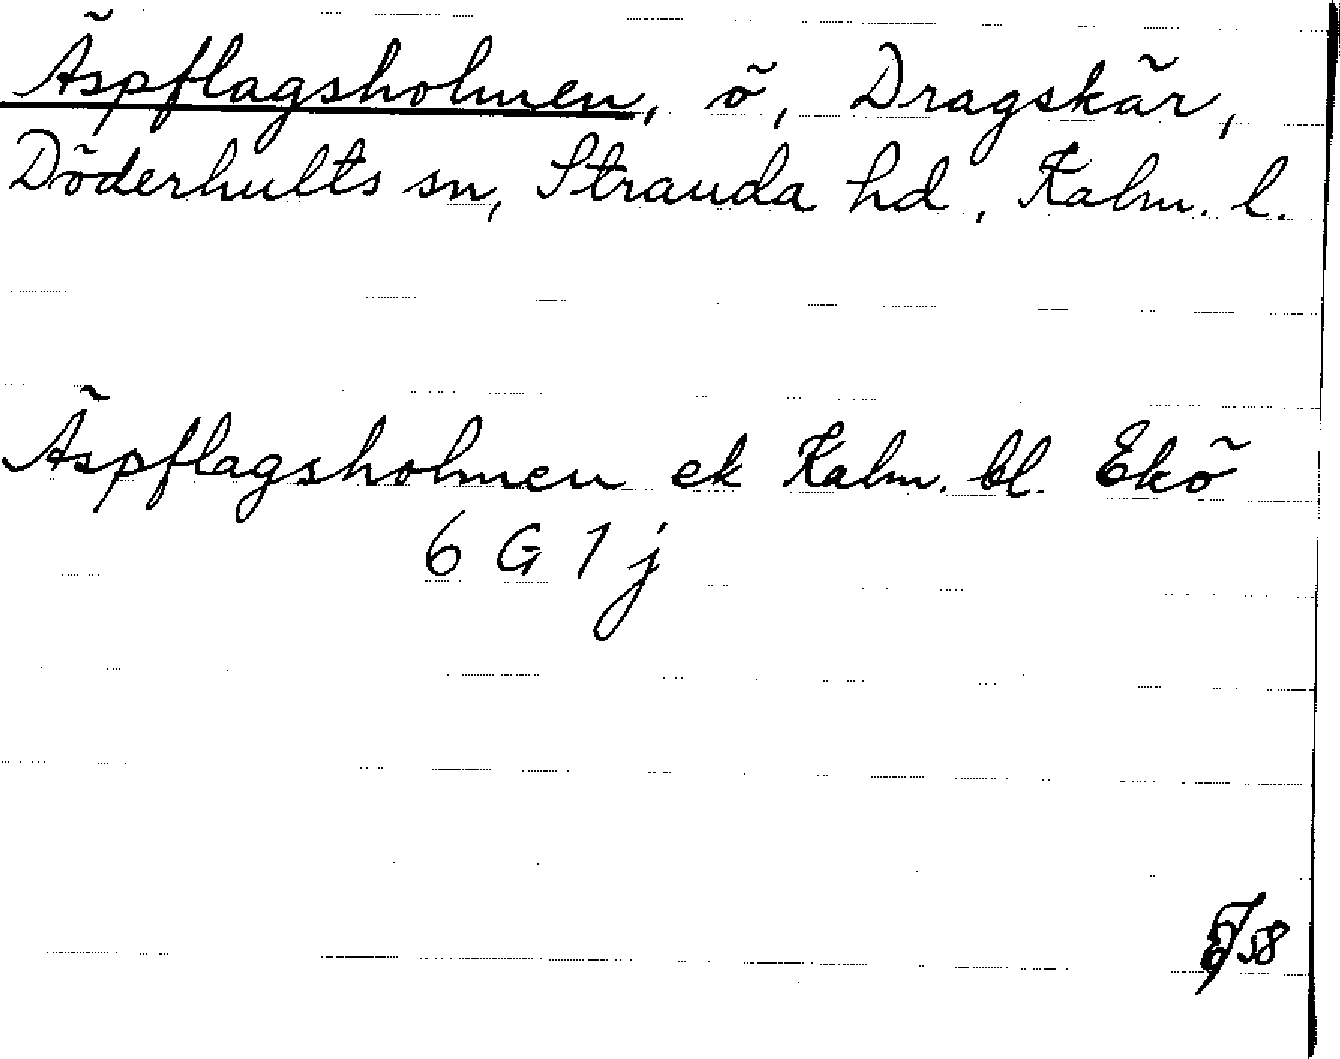 Äspflagsholmen, ö, Dragskär,
Döderhults sn, Stranda hd, Kalm. l.
Äspflagsholmen ek Kalm. bl. Ekö
6 G 1 j
58